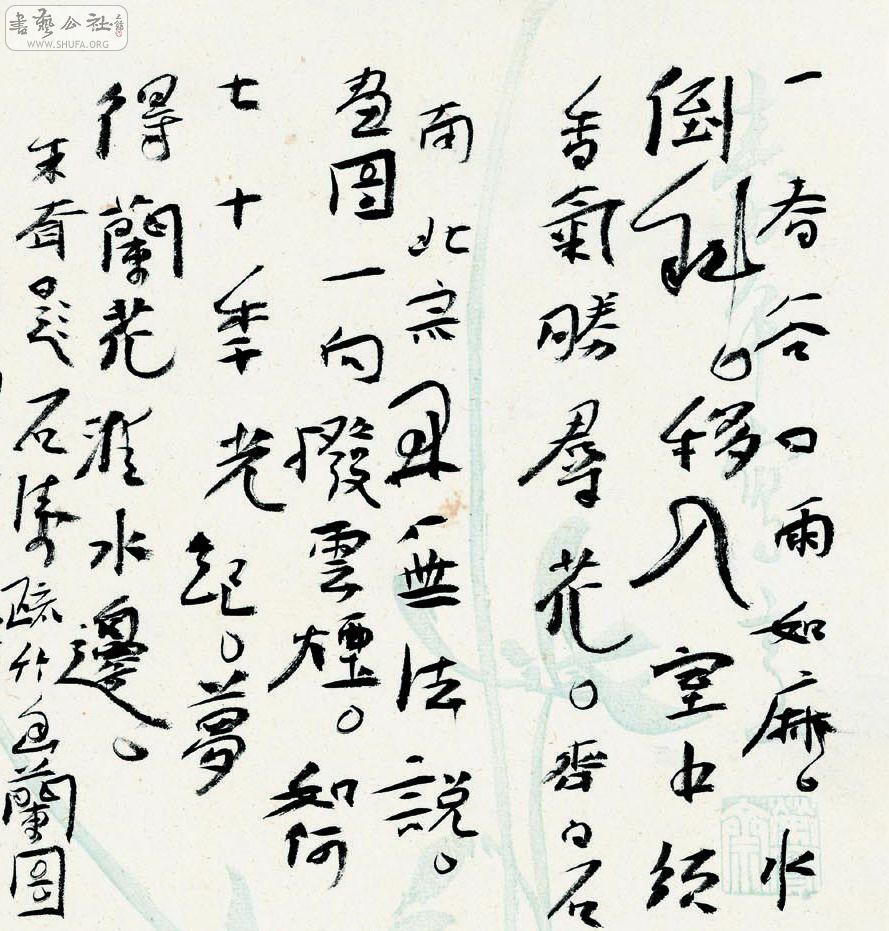 書藝公社
WWW.SHUFA.ORG
一春谷口雨如麻。水
倒。移入室中
香氣勝羣花。齊白石
南北宗開無法説。
畫圖一向撥雲煙。如何
七十秊光紀。夢
得蘭花淮水邊。
朱耷題石濤疏竹幽蘭圖